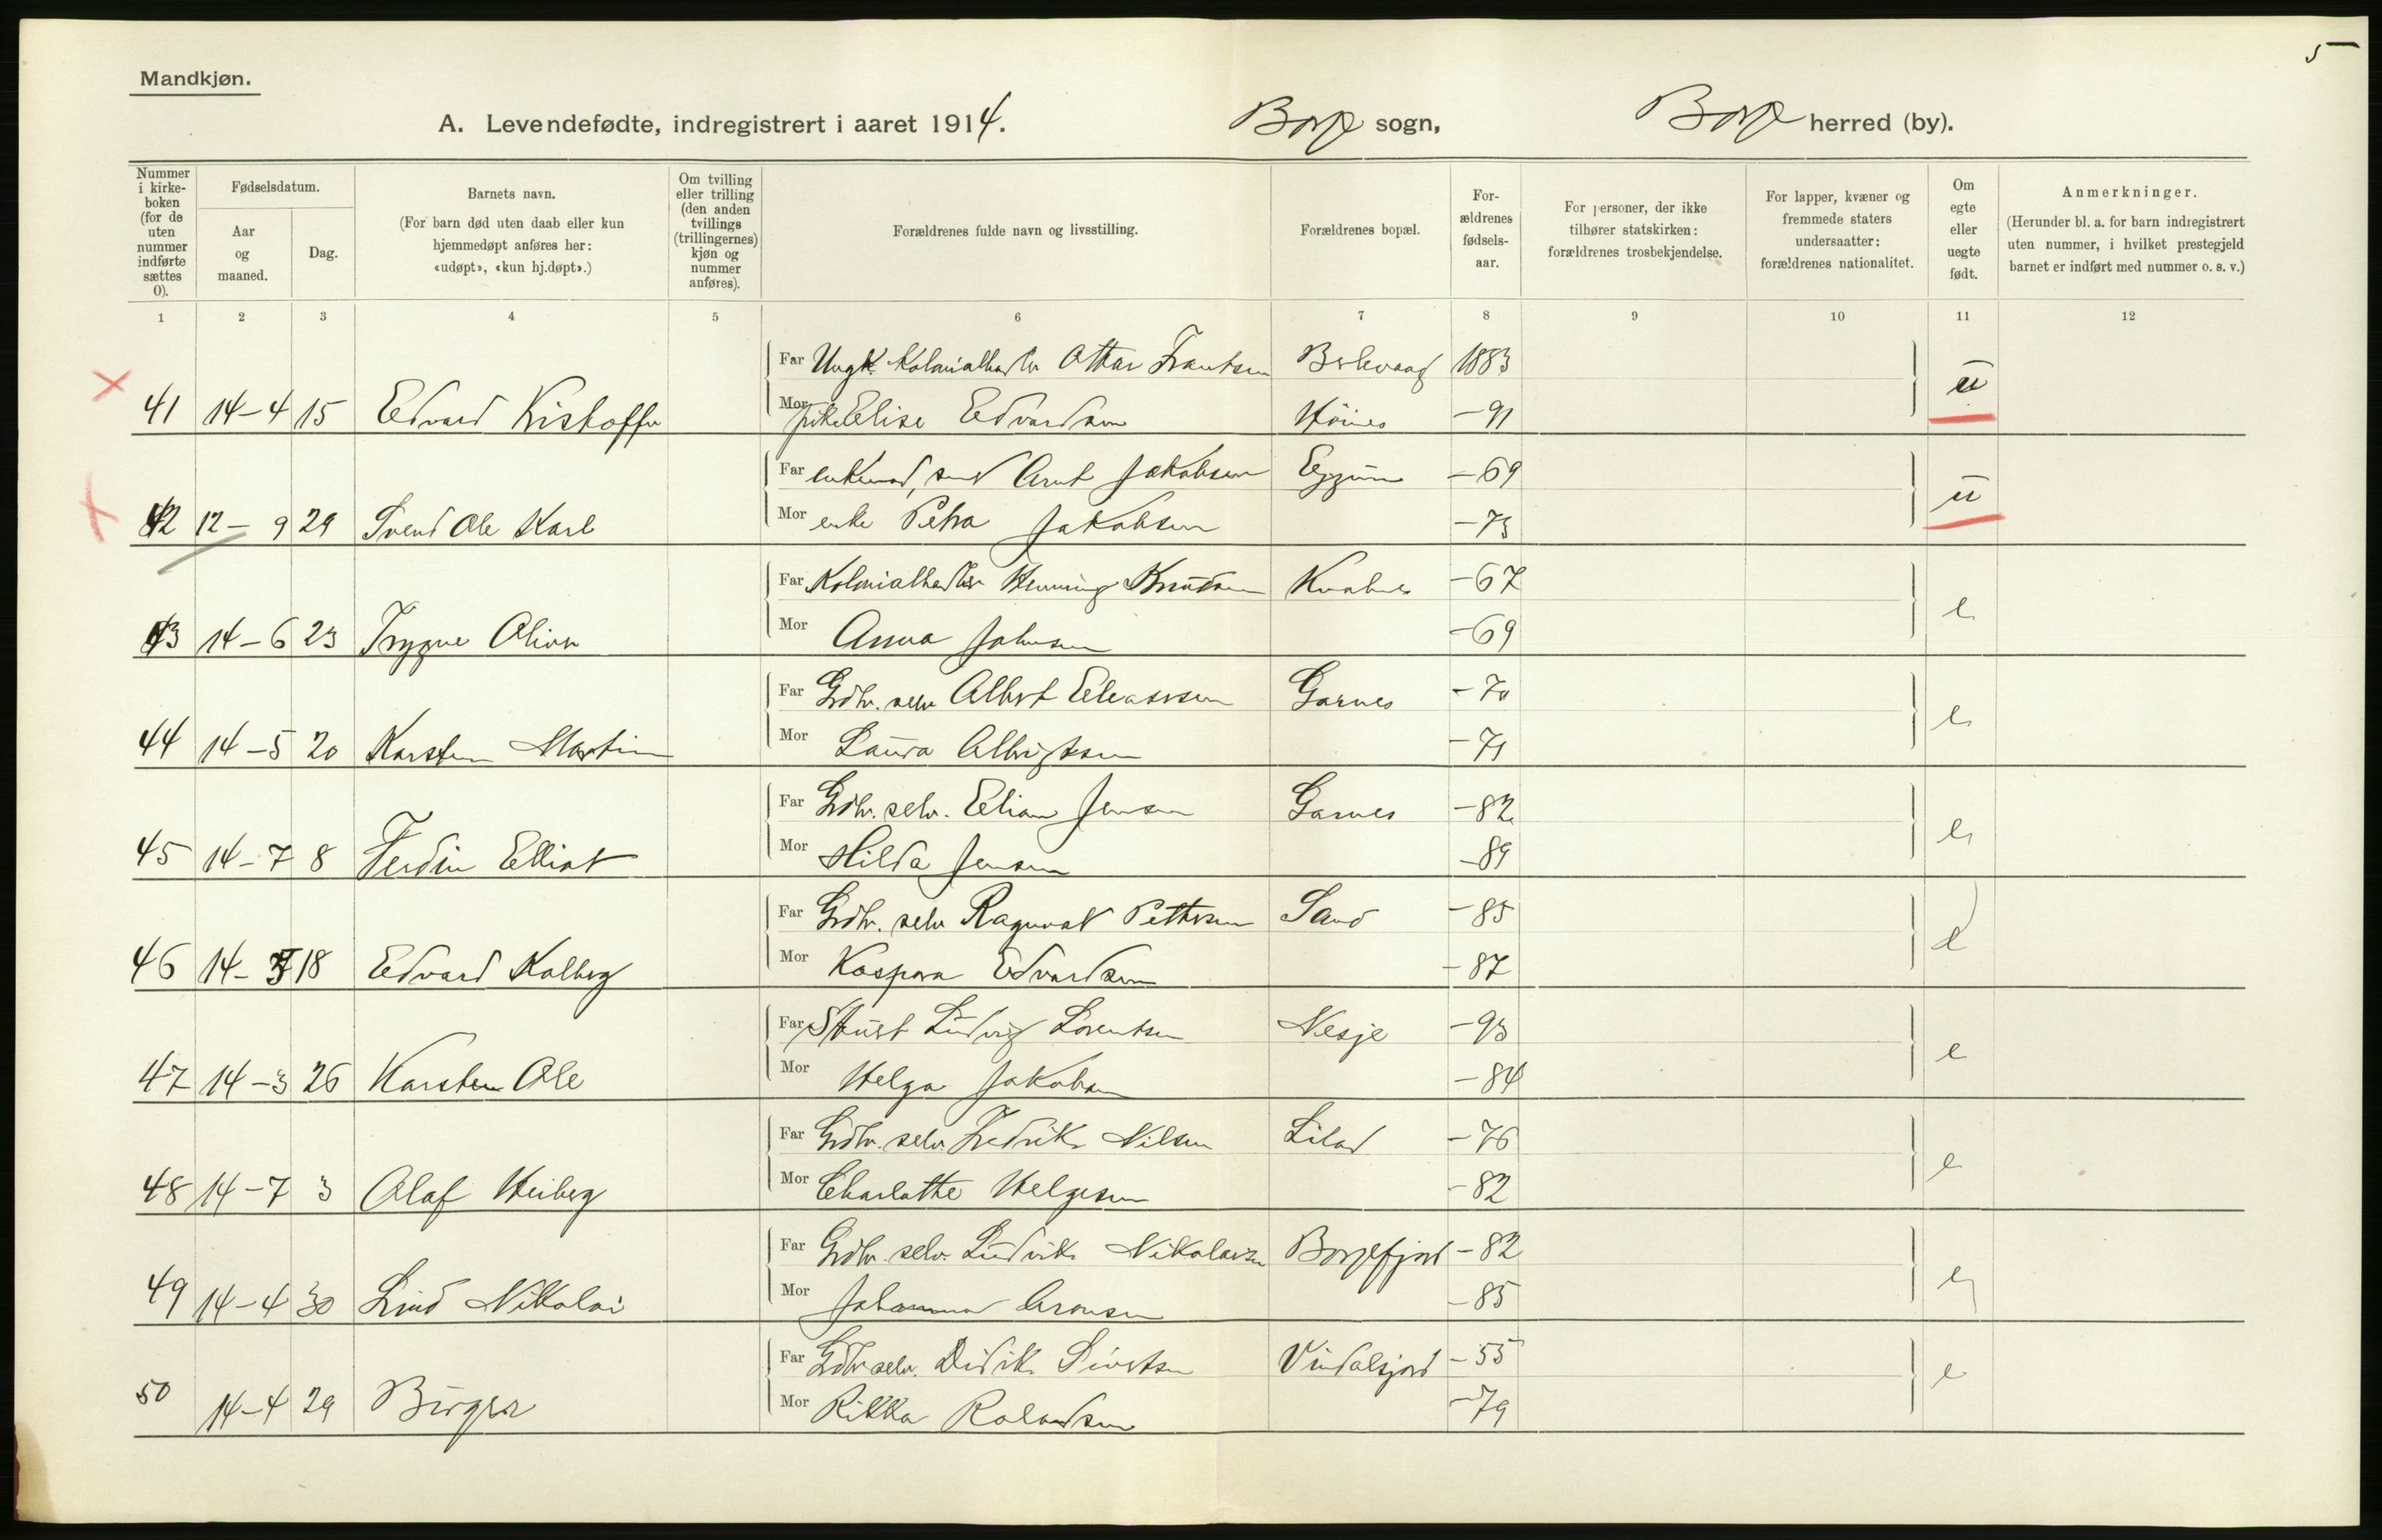 5
Mandkjøn.
A. Levendefødte, indregistrert i aaret 1914. Borge sogn, Borge herred (by).
Nummer i kirkeboken (for de uten nummer indførte sættes 0).
Fødselsdatum.
Aar og maaned.
Dag.
Barnets navn.
(For barn død uten daab eller kun hjemmedøpt anføres her: «udøpt», «kun hj.døpt».)
Om tvilling eller trilling (den anden tvillings (trillingernes) kjøn og nummer anføres).
Forældrenes fulde navn og livsstilling.
Forældrenes bopæl.
Forældrenes fødselsaar.
For personer, der ikke tilhører statskirken: forældrenes trosbekjendelse.
For lapper, kvæner og fremmede staters undersaatter: forældrenes nationalitet.
Om egte eller uegte født.
Anmerkninger.
(Herunder bl. a. for barn indregistrert uten nummer, i hvilket prestegjeld barnet er indført med nummer o. s. v.)
1 2 3 4 5 6 7 8 9 10 11 12
Far Ungk. Kolonialhandler Ottar Frantsen 1883
41 14-4 15 Edvard Kristoffer Mor pike Elise Edvardsen -91 u
Far enkemand, Arnt Jakobsen Eggum -69
42 12-9 29 Svend Ole Karl Mor enke Petra Jakobsen -73 u
Far Kolonialhandler Henning Knutsen Kvalnes -67
43 14-6 23 Trygve Oliver Mor Anna Johnsen -69 e
Far Grdbr. selv Albert Eleassen Garnes -70
44 14-5 20 Karsten Martin Mor Laura Albrigtsen -71 e
Far Grdbr. selv. Elias Jensen Garnes -82
45 14-7 8 Ferdin Elliot Mor Hilda Jensen -89 e
Far Grdbr. selv Ragnvat Pettersen Sand -85
46 14- 18 Edvard Kolberg Mor Kaspara Edvardsen -87 e
Far Ludvig Lorentsen Nesje -93
47 14-3 26 Karsten Ole Mor Helga Jakobsen -84 e
Far Grdbr. selv. Fredrik Nilsen Liland -76
48 14-7 3 Olaf Heiberg Mor Charlotte Helgesen -82 e
Far Grdbr. selv. Ludvik Nikolaisen Borgefjord -82
49 14-4 30 Lind Nikolai Mor Johanna Aronsen -85 e
Far Grdbr selv. Didrik Sivertsen Vindalsjord -55
50 14-4 29 Birger Mor Rikka Rolandsen -79 e